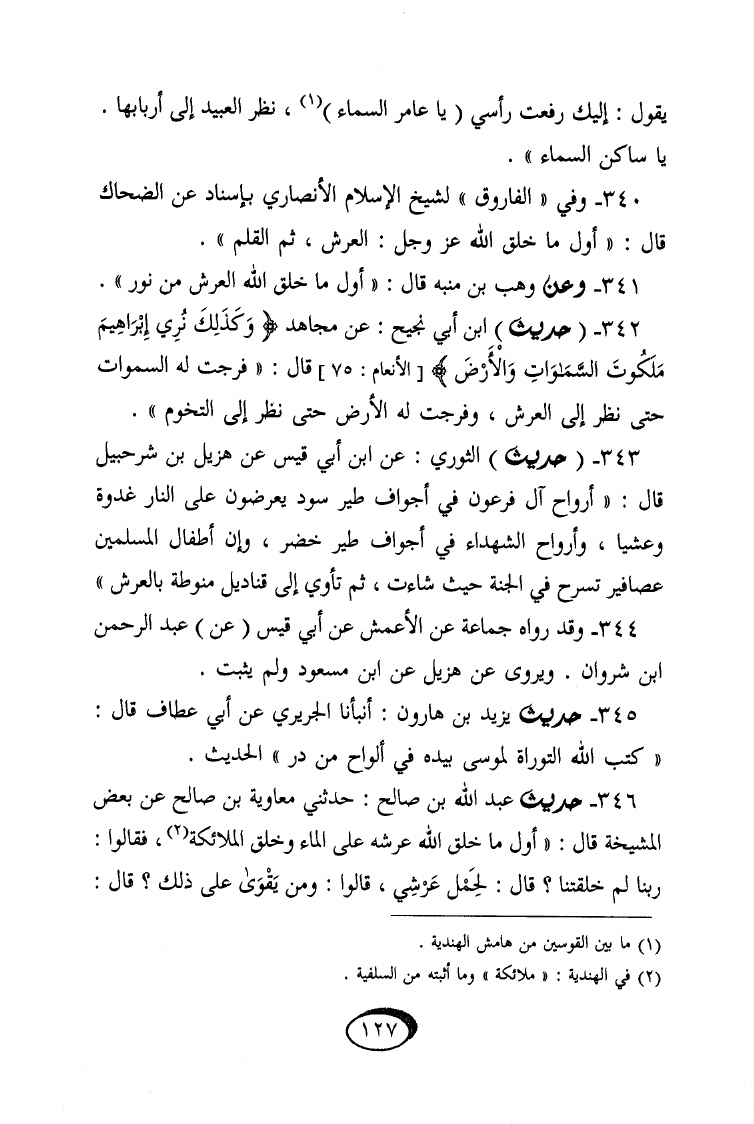 يقول : إليك رفعت رأسي ( يا عامر السماء )(١) ، نظر العبيد إلى أربابها .
يا ساكن السماء » .
٣٤٠ـ وفي « الفاروق » لشيخ الإسلام الأنصاري بإسناد عن الضحاك
قال : « أول ما خلق الله عز وجل : العرش ، ثم القلم » .
٣٤١ـ وعن وهب بن منبه قال : « أول ما خلق الله العرش من نور » .
٣٤٢ـ ( حديث ) ابن أبي نجيح : عن مجاهد ﴿ وَكَذَلِكَ نُرِي إِبْرَاهِيمَ
مَلَكُوتَ السَّمَـٰوَاتِ وَالْأَرْضَ ﴾ [ الأنعام : ٧٥ ] قال : « فرجت له السموات
حتى نظر إلى العرش ، وفرجت له الأرض حتى نظر إلى التخوم » .
٣٤٣ـ ( حديث ) الثوري : عن ابن أبي قيس عن هزيل بن شرحبيل
قال : « أرواح آل فرعون في أجواف طير سود يعرضون على النار غدوة
وعشيا ، وأرواح الشهداء في أجواف طير خضر ، وإن أطفال المسلمين
عصافير تسرح في الجنة حيث شاءت ، ثم تأوي إلى قناديل منوطة بالعرش »
٣٤٤ـ وقد رواه جماعة عن الأعمش عن أبي قيس ( عن ) عبد الرحمن
ابن شروان . ويروى عن هزيل عن ابن مسعود ولم يثبت .
٣٤٥ـ حديث يزيد بن هارون : أنبأنا الجريري عن أبي عطاف قال :
« كتب الله التوراة لموسى بيده في ألواح من در » الحديث .
٣٤٦ـ حديث عبد الله بن صالح : حدثني معاوية بن صالح عن بعض
المشيخة قال : « أول ما خلق الله عرشه على الماء وخلق الملائكة(٢) ، فقالوا :
ربنا لم خلقتنا ؟ قال : لِحَمْل عَرْشِي ، قالوا : ومن يَقْوَىٰ على ذلك ؟ قال :
(١) ما بين القوسين من هامش الهندية .
(٢) في الهندية : « ملائكة » وما أثبته من السلفية .
١٢٧